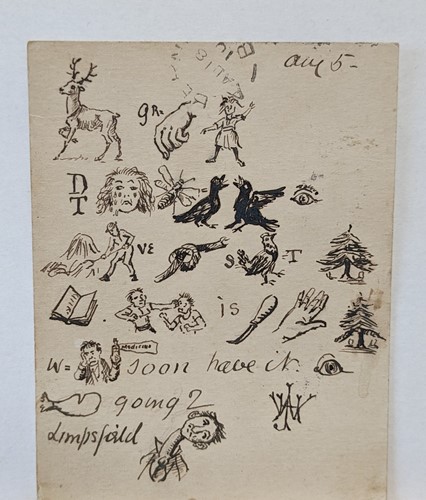 Aug 5-
gR-
D
T
VE
g =T
is
W= medicine soon have it.
going 2
Limpsfield